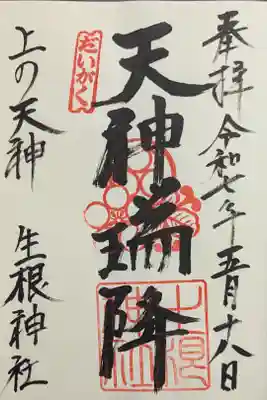 奉拝 令和七年五月十八日
だいがく
天神瑞降
上の天神 生根神社